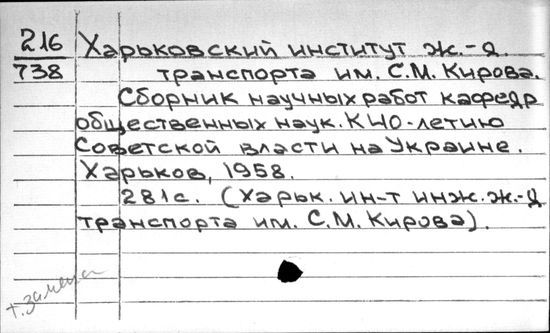 216 Харьковский институт ж.-д.
738 транспорта им. С.М. Кирова.
Сборник научных работ кафедр
общественных наук. К 40-летию
Советской власти на Украине.
Харьков, 1958.
281с. (Харьк. ин-т инж. ж.-д
транспорта им. С.М. Кирова).
т. замена